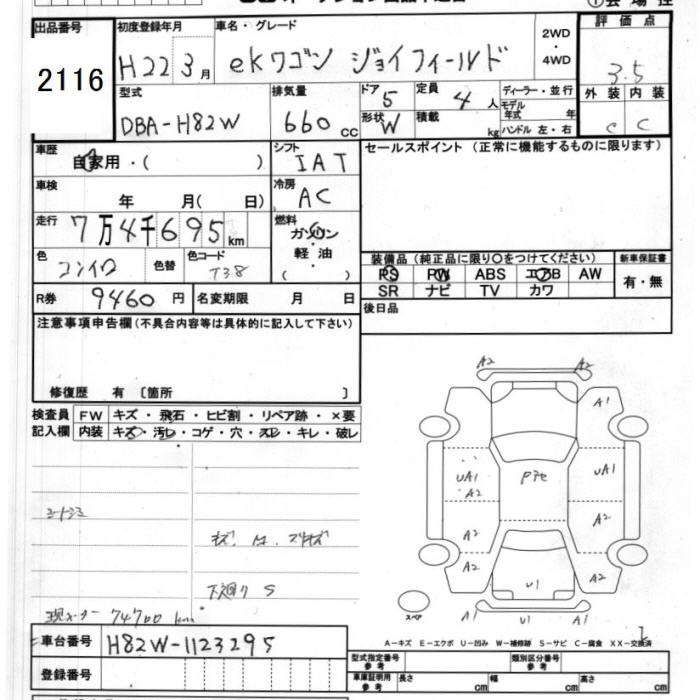 出品番号
2116
初度登録年月
H22 3月
車名・グレード
ekワゴン ジョイフィールド
2WD
・
4WD
評価点
3.5
外装 内装
C C
型式
DBA-H82W
排気量
660cc
ドア
5
定員
4人
形状
W
積載
kg
ディーラー・並行
モデル年式 年
ハンドル 左・右
車歴
自家用・( )
シフト
IAT
セールスポイント (正常に機能するものに限ります)
車検
年 月( 日)
冷房
AC
走行
7万4千695km
燃料
ガソリン
・
軽油
( )
色
コンイロ
色替
色コード
T38
装備品 (純正品に限り○をつけてください)
PS PW ABS エアB AW
SR ナビ TV カワ
新車保証書
有・無
R券
9460円
名変期限 月 日
後日品
注意事項申告欄(不具合内容等は具体的に記入して下さい)
修復歴 有 〔箇所 〕
検査員記入欄
FW キズ・飛石・ヒビ割・リペア跡・×要
内装 キズ・汚レ・コゲ・穴・スレ・キレ・破レ
下廻り S
現メーター 74700 km
A2 A2
A1
UA1 Pアセ UA1
A2 A2
A2 A2
A2 A2
U1
A1 U1 A1
スペア
A-キズ E-エクボ U-凹み W-補修跡 S-サビ C-腐食 XX-交換済
車台番号
H82W-1123295
登録番号
型式指定番号
参考
類別区分番号
参考
車庫証明用
参考
長さ cm
幅 cm
高さ cm